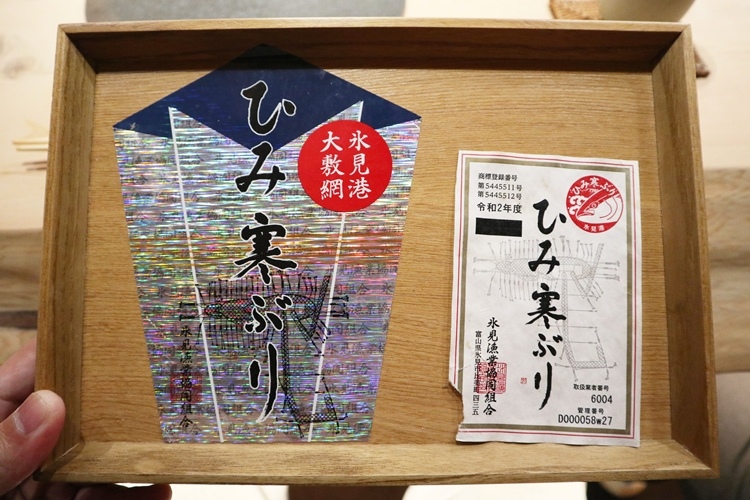 ひみ寒ぶり
氷見港
大敷網
氷見漁業協同組合
商標登録番号
第5445511号
第5445512号
令和2年度
ひみ寒ぶり
氷見港
ひみ寒ぶり
氷見漁業協同組合
富山県氷見市比美町四三五
取扱業者番号
6004
管理番号
D000058w27